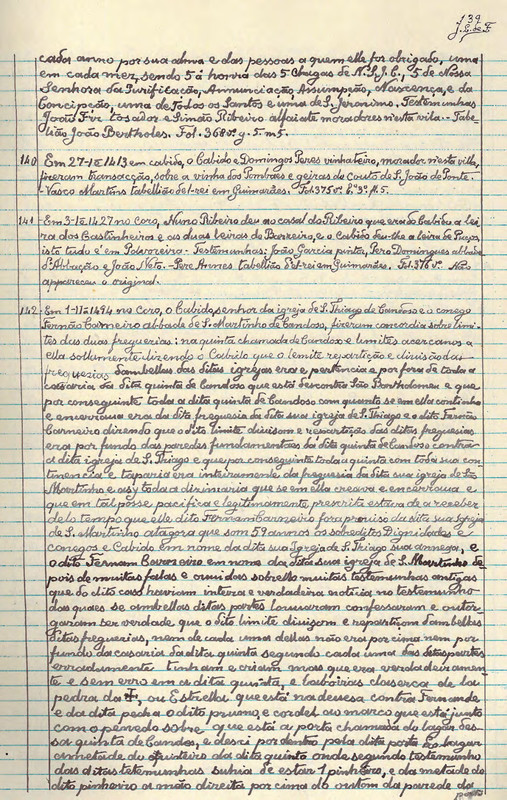 139
J. L. de F.
cada anno por sua alma e das pessoas a quem elle for obrigado, uma
em cada mez, sendo 5 á honra das 5 Chagas de N. S. J. C., 5 de Nossa
Senhora da Purificação, Annunciação Assumpção, Nascença, e da
Concipção, uma de Todos os Santos e uma de S. Jeronimo. Testemunhas
João Frz tosador e Simão Ribeiro alfaiate moradores nesta villa. - Tabe-
lião João Bertholes. Fol. 368
140 Em 27-12-1413 em cabido, o Cabido e Domingos Peres vinhateiro, morador n'esta villa,
fizeram transacção, sobre a vinha dos Pombaes e geiras do Couto de S. João de Ponte.
- Vasco Martins tabellião d'el-rei em Guimarães. Fol. 375
141 Em 3-12-1427 no Coro, Nuno Ribeiro deu ao casal do Ribeiro que era do Cabido a lei-
ra dos Castinheiros e as duas leiras de Barreiro, e o Cabido deu-lhe a leira de
isto tudo é em Polvoreira. - Testemunhas: João Garcia Pero Domingues abbade
d'Abbação e João Neto. - Pere Annes tabellião d'el-rei em Guimarães. Fol. 376 Não
appareceu o original.
142 Em 1-11-1494 no Coro, o Cabido, senhor da igreja de S. Thiago de Candoso e o conego
Fernão Carneiro abbade de S. Martinho de Candoso, fizeram concordia sobre limi-
tes das duas freguezias: na quinta chamada de Candoso e limites acercanos a
ella sollamente dizendo o Cabido que o lemite repartição e divisão das
freguezias d'ambellas das ditas igrejas era e pertencia e por fora de toda a
casaria da dita quinta de Candoso que está descontra São Bartholomeu e que
por conseguinte toda a dita quinta de Candoso com quanto se em ella continha
e encerrava era da dita freguesia da dita sua igreja de S. Thiago e o dito Fernão
Carneiro dizendo que o dito limite divisom e repartição das ditas freguesias
era por fundo das paredes fundamentaes da dita quinta de Candoso contra
a dita igreja de S. Thiago e que por conseguinte toda a quinta com toda sua con-
tinencia e taparia era inteiramente da freguesia da dita sua igreja de São
Martinho e assy toda a dizimaria que se em ella creava e encerrava e
que em tal posse pacifica e legitimamente prescrita estava de a receber
de lo tempo que elle dito Fernam Carneiro fora proviso da dita sua Igreja
de S. Martinho atagora que som 59 annos os sobreditos Dignidades e
conegos e Cabido em nome da dita sua Igreja de S. Thiago sua annexa, e
o dito Fernam Carneiro em nome da dita sua igreja de S. Martinho de-
pois de muitas falas e ouvidas sobrello muitas testemunhas antigas
que do dito caso haviam inteira e verdadeira noticia no testemunho
das quaes se ambellas ditas partes louvaram confessaram e outor-
garam ser verdade que o dito limite divisom e repartiçam d'ambellas
ditas freguezias, nem de cada uma dellas não era por cima nem por
fundo da casaria da dita quinta segundo cada uma das ditas partes
erradamente tinham e criam mas que era verdadeiramen-
te e sem erro em a dita quinta, e laboiras da serca de la
pedra da ✝, ou Estrella que está na devesa contra Fernande
e da dita pedra o dito prumo, e cordel ao marco que está junto
com o penedo sobre que está a porta chamada do lagar des-
sa quinta de Candoso, e desri por dentro pela dita porta do lagar
a metade do quinteiro da dita quinta onde segundo testemunho
das ditas testemunhas suhia de estar 1 pinheiro, e da metade do
dito pinheiro a mão direita por cima do outom da parede da